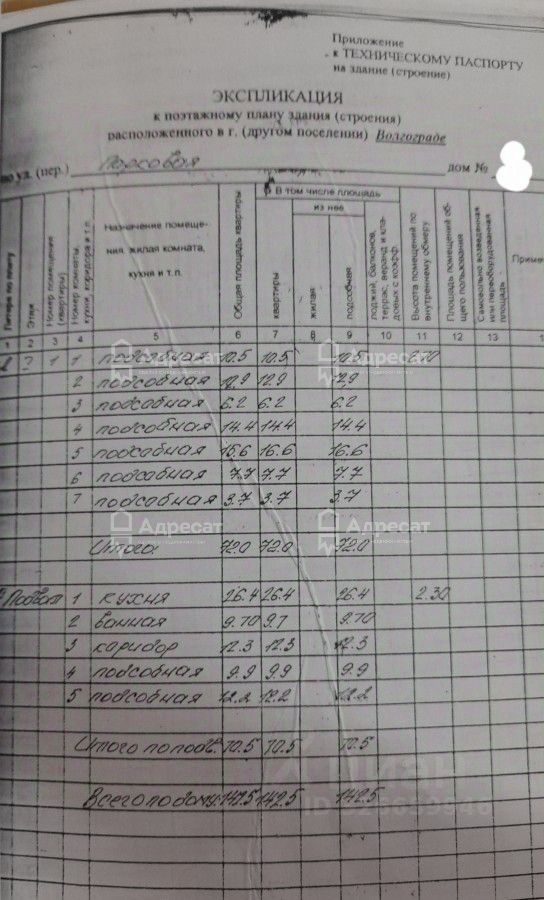 Приложение
к ТЕХНИЧЕСКОМУ ПАСПОРТУ
на здание (строение)
ЭКСПЛИКАЦИЯ
к поэтажному плану здания (строения)
расположенного в г. (другом поселении) Волгограде
по ул. (пер.) дом №
Литера по плану
Этаж
Номер помещения (квартиры)
Номер комнаты, кухни, коридора и т.п.
Назначение помеще-
ния жилая комната,
кухня и т.п.
Общая площадь квартиры
В том числе площадь
из нее
квартиры
жилая
подсобная
лоджий, балконов, террас, веранд и кладовых с коэфф.
Высота помещений по внутреннему обмеру
Площадь помещений общего пользования
Самовольно возведенная или переоборудованная площадь
Приме
1 2 3 4 5 6 7 8 9 10 11 12 13
1 1 подсобная 10.5 10.5 10.5
2 подсобная 12.9 12.9 12.9
3 подсобная 6.2 6.2 6.2
4 подсобная 14.4 14.4 14.4
5 подсобная 16.6 16.6 16.6
6 подсобная 7.7 7.7 7.7
7 подсобная 3.7 3.7 3.7
Итого 72.0 72.0 72.0
Подвал 1 кухня 26.4 26.4 26.4 2.30
2 ванная 9.70 9.7 9.70
3 каридор 12.3 12.3 12.3
4 подсобная 9.9 9.9 9.9
5 подсобная 12.2 12.2 12.2
Итого по подв. 70.5 70.5 70.5
Всего по дому: 142.5 142.5 142.5
Адресат
Адресат
Адресат
Адресат
Циан